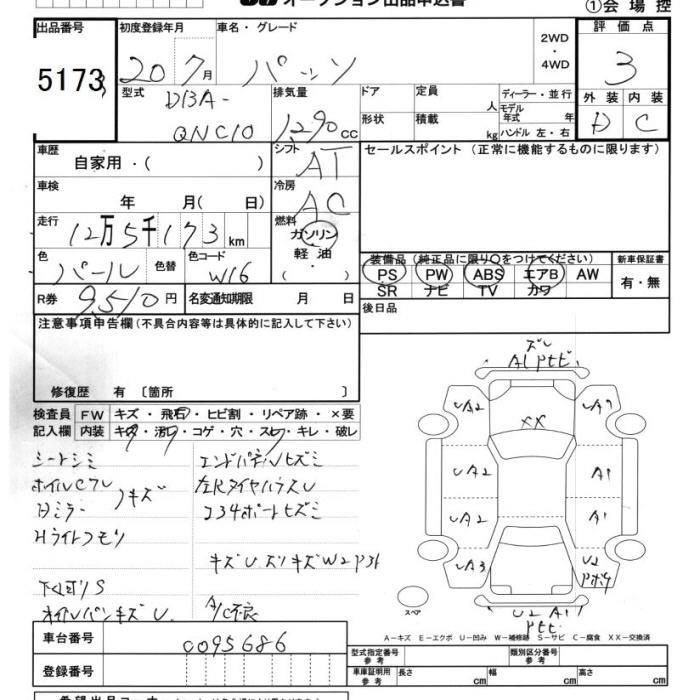 オークション出品申込書
①会場控
出品番号 初度登録年月 車名・グレード 2WD ・ 4WD 評価点
5173 20 7月 パッソ 3
型式 DBA-QNC10 排気量 1290cc ドア 定員 人 ディーラー・並行 外装 内装
形状 積載 kg モデル年式 年 ハンドル 左・右 D C
車歴 自家用・( ) シフト AT セールスポイント (正常に機能するものに限ります)
車検 年 月( 日) 冷房 AC
走行 12万5千173km 燃料 ガソリン 軽油 ( ・ )
色 パール 色替 色コード W16
装備品 (純正品に限り○をつけてください) 新車保証書
PS PW ABS エアB AW 有・無
SR ナビ TV カワ
R券 9510円 名変通知期限 月 日
後日品
注意事項申告欄(不具合内容等は具体的に記入して下さい)
修復歴 有 〔箇所 〕
検査員 FW キズ・飛石・ヒビ割・リペア跡・×要
記入欄 内装 キズ・汚レ・コゲ・穴・スレ・キレ・破レ
シートシミ エンドパネルヒズミ
ホイルCフレ キズ 左Rタイヤハウス U
Bミラー 234ポートヒズミ
Hライトクモリ
キズ U スリキズ W2 P31
下廻りS
オイルパンキズ U A/C不良
ズレ
A1 Pキビ
UA2 XX UA2
UA2 A1
UA2 A1
UA3 U2 Pボケ
スペア
U2 A1
A－キズ E－エクボ U－凹み W－補修跡 S－サビ C－腐食 XX－交換済
車台番号 0095686
型式指定番号 参考 類別区分番号 参考
登録番号
車庫証明用 参考 長さ cm 幅 cm 高さ cm